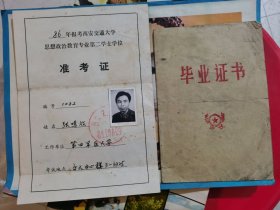 86年报考西安交通大学
思想政治教育专业第二学士学位
准考证
编号 1032
姓名 张
工作单位 第四军医大学
考试地点
毕业证书